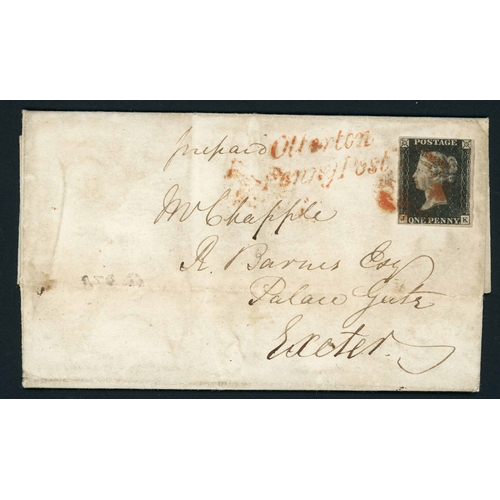 prepaid
Otterton
Penny Post
POSTAGE
J K
ONE PENNY
Mr Chapple
R. Barnes Esq
Palace Gate
Exeter